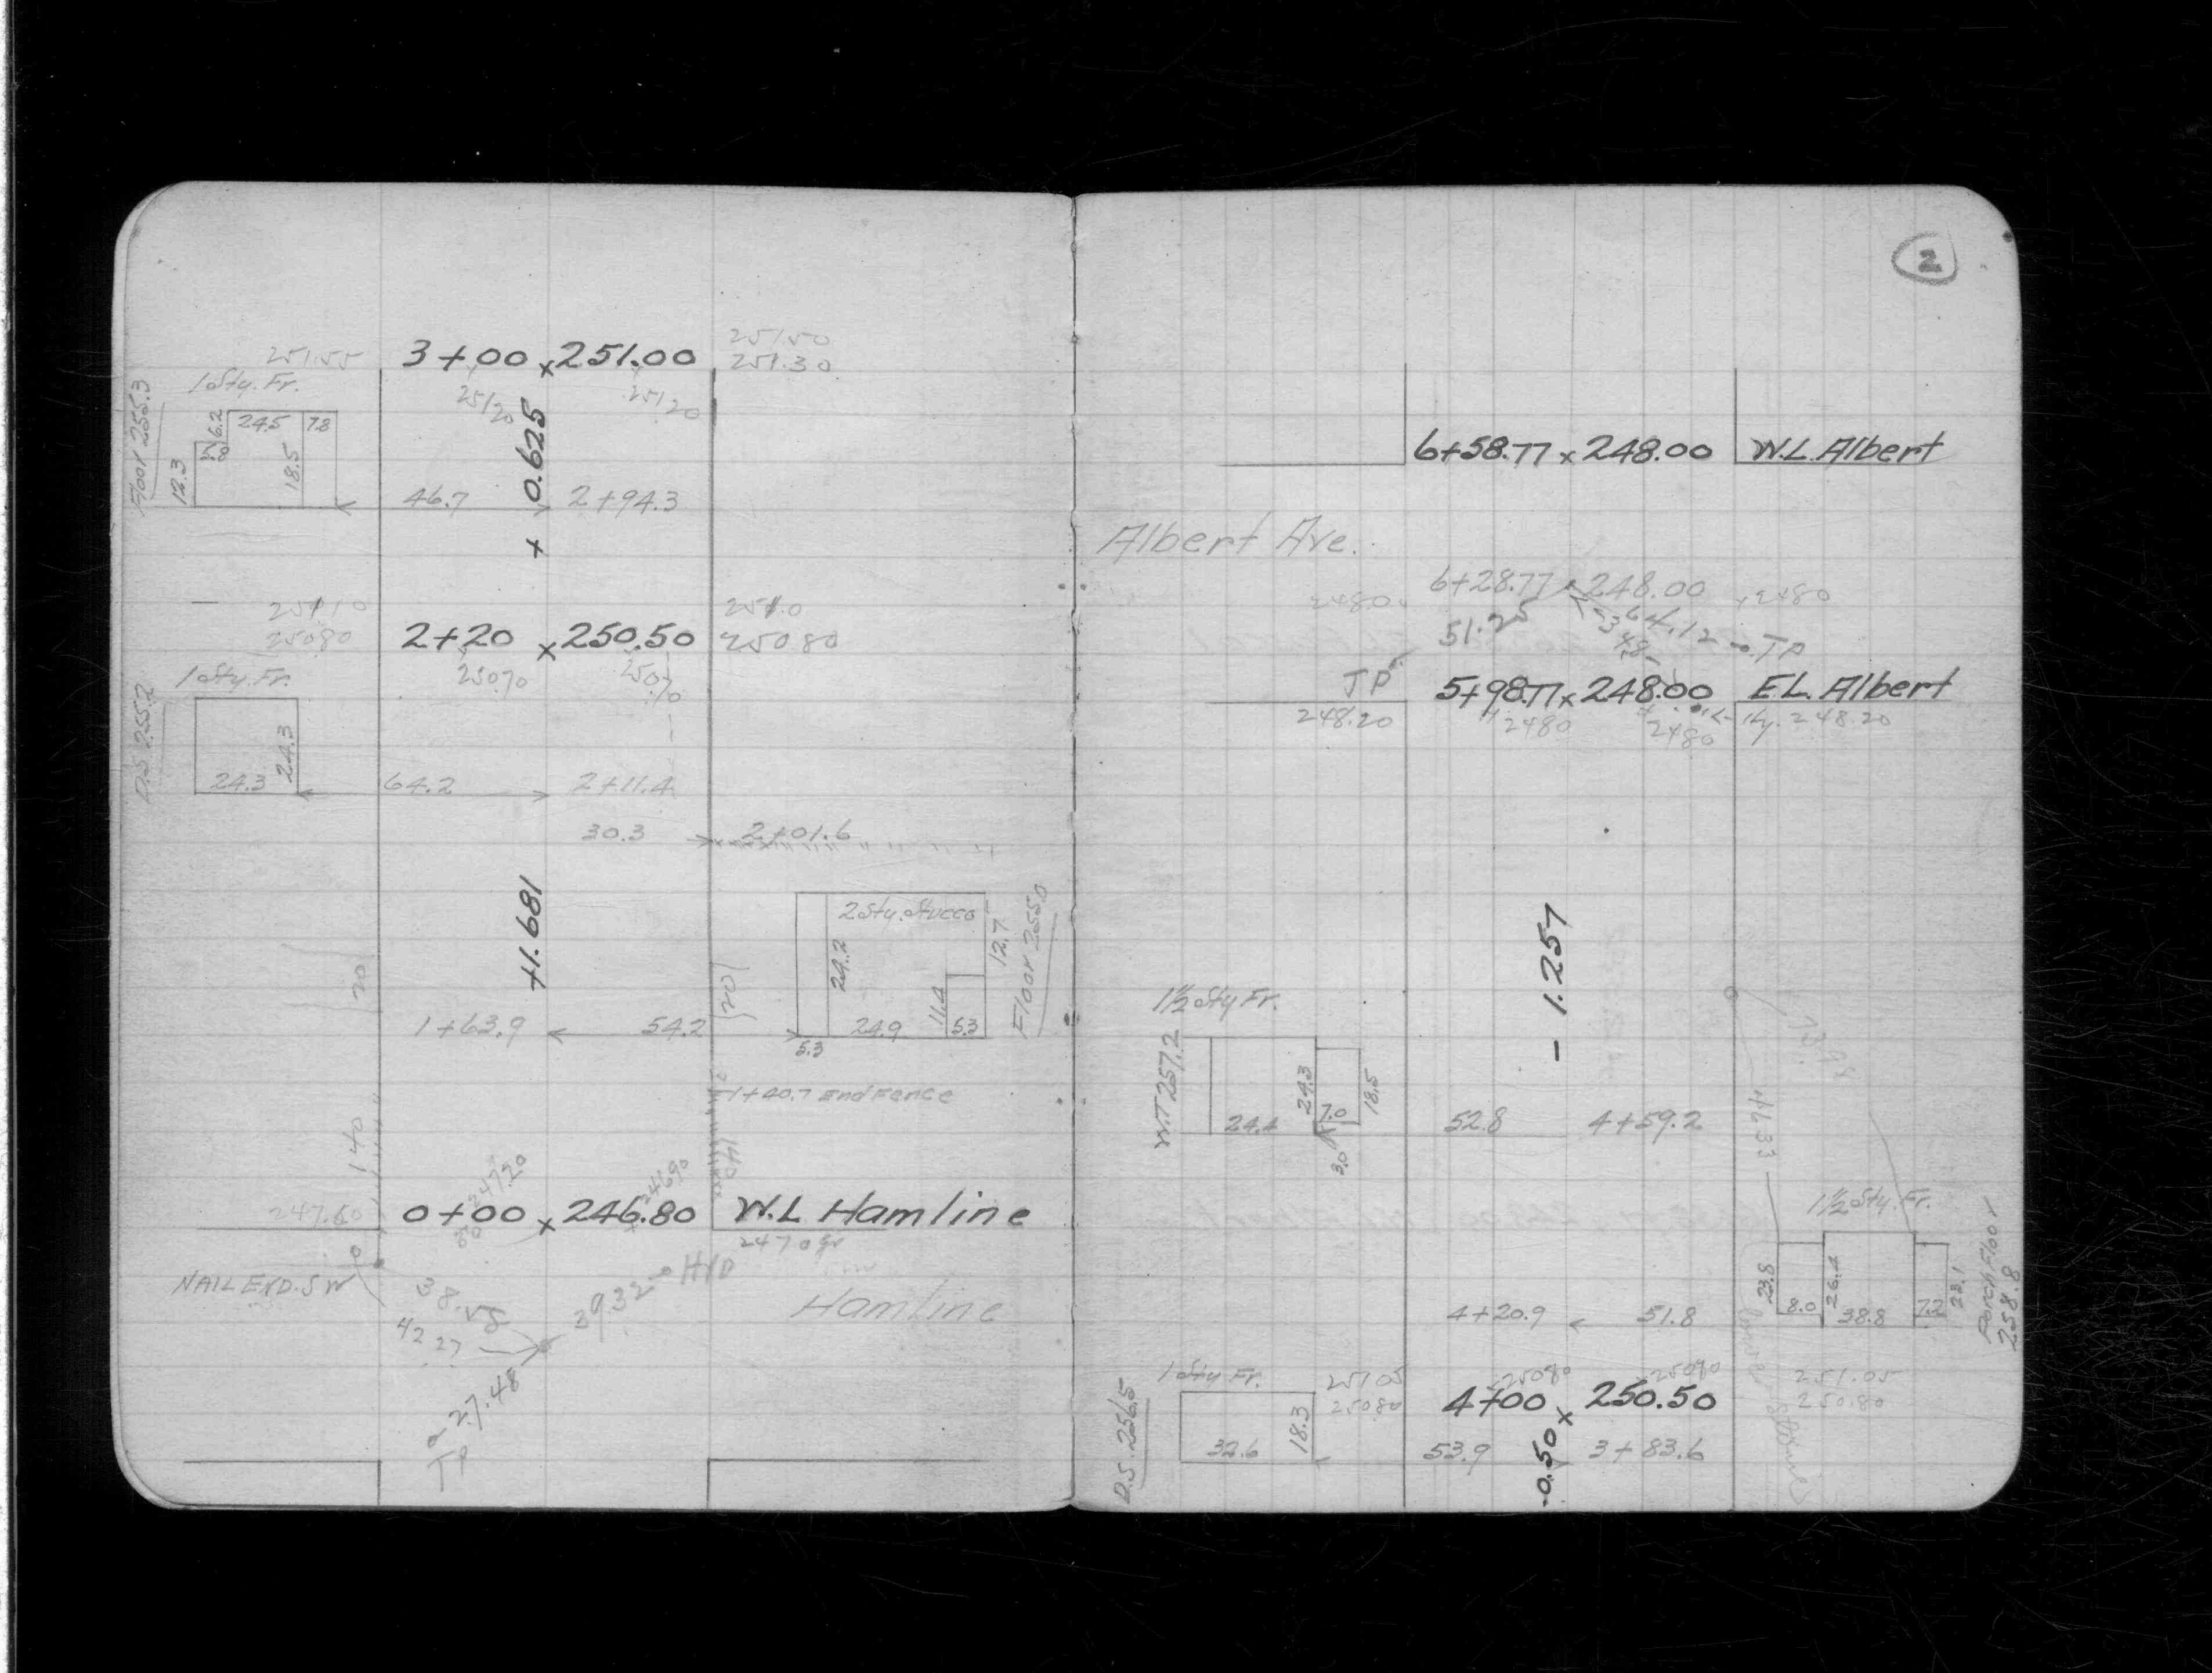 251.50
251.55
3+00 x 251.00
251.30
1 Sty. Fr.
25120
25120
Floor 255.3
6.2
24.5
7.8
18.5
12.3
+ 0.625
46.7
2+94.3
251.10
251.0
25080
2+20 x 250.50
25080
1 Sty. Fr.
25070
25070
D.S 255.2
24.3
24.3
64.2
2+11.4
30.3
2+01.6
+1.681
2 Sty. Stucco
24.2
12.7
Floor 255.0
11.4
24.9
5.3
5.3
20
20
1+63.9
54.2
1+40.7 End Fence
140
247.20
24690
247.60
0+00 x 246.80
W.L Hamline
2470
NAIL END. S W
HYD
39.32
42.27
Hamline
27.48
TP
2
6+58.77 x 248.00
W.L. Albert
Albert Ave.
2480
6+28.77
248.00
2480
51.25
64.12
TP
TP
5+98.77 x 248.00
E.L. Albert
248.20
2480
2480
248.20
- 1.257
1½ Sty Fr.
W.T 257.2
24.4
24.3
7.0
18.5
3.0
52.8
4+59.2
46.33
1½ Sty. Fr.
23.8
8.0
26.4
38.8
7.2
23.1
Porch Floor
258.8
4+20.9
51.8
1 Sty Fr.
25105
25080
25080
251.05
25080
4+00 x 250.50
250.80
D.S. 256.5
32.6
18.3
53.9
-0.50
3+83.6